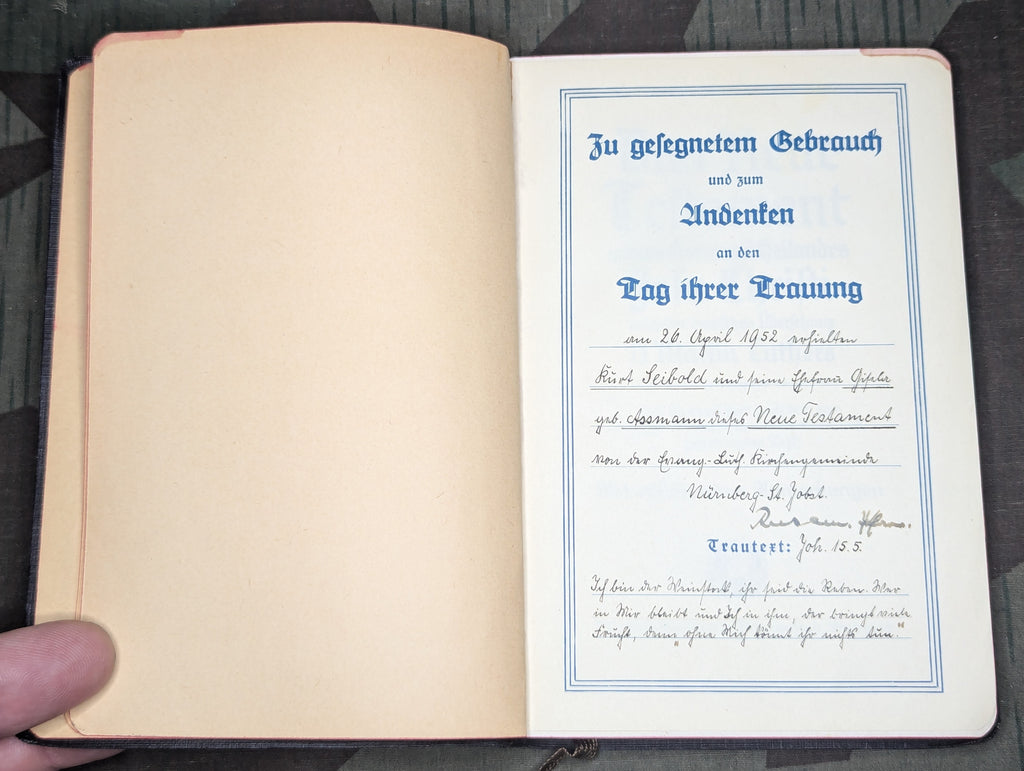 Zu gesegnetem Gebrauch
und zum
Andenken
an den
Tag ihrer Trauung
am 26. April 1952 erhielten
Kurt Seibold und seine Ehefrau Gisela
geb. Assmann dieses Neue Testament
von der Evang.-Luth. Kirchengemeinde
Nürnberg-St. Jobst.
Trautext: Joh. 15.5.
Ich bin der Weinstock, ihr seid die Reben. Wer
in Mir bleibt und Ich in ihm, der bringt viele
Frucht, denn „ohne Mich könnt ihr nichts tun.“